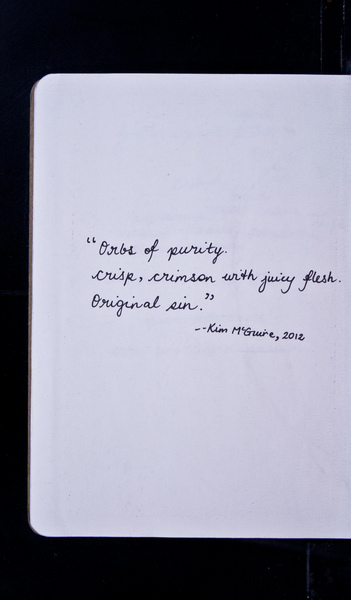 “Orbs of purity.
crisp, crimson with juicy flesh.
Original sin.”
--Kim McGuire, 2012